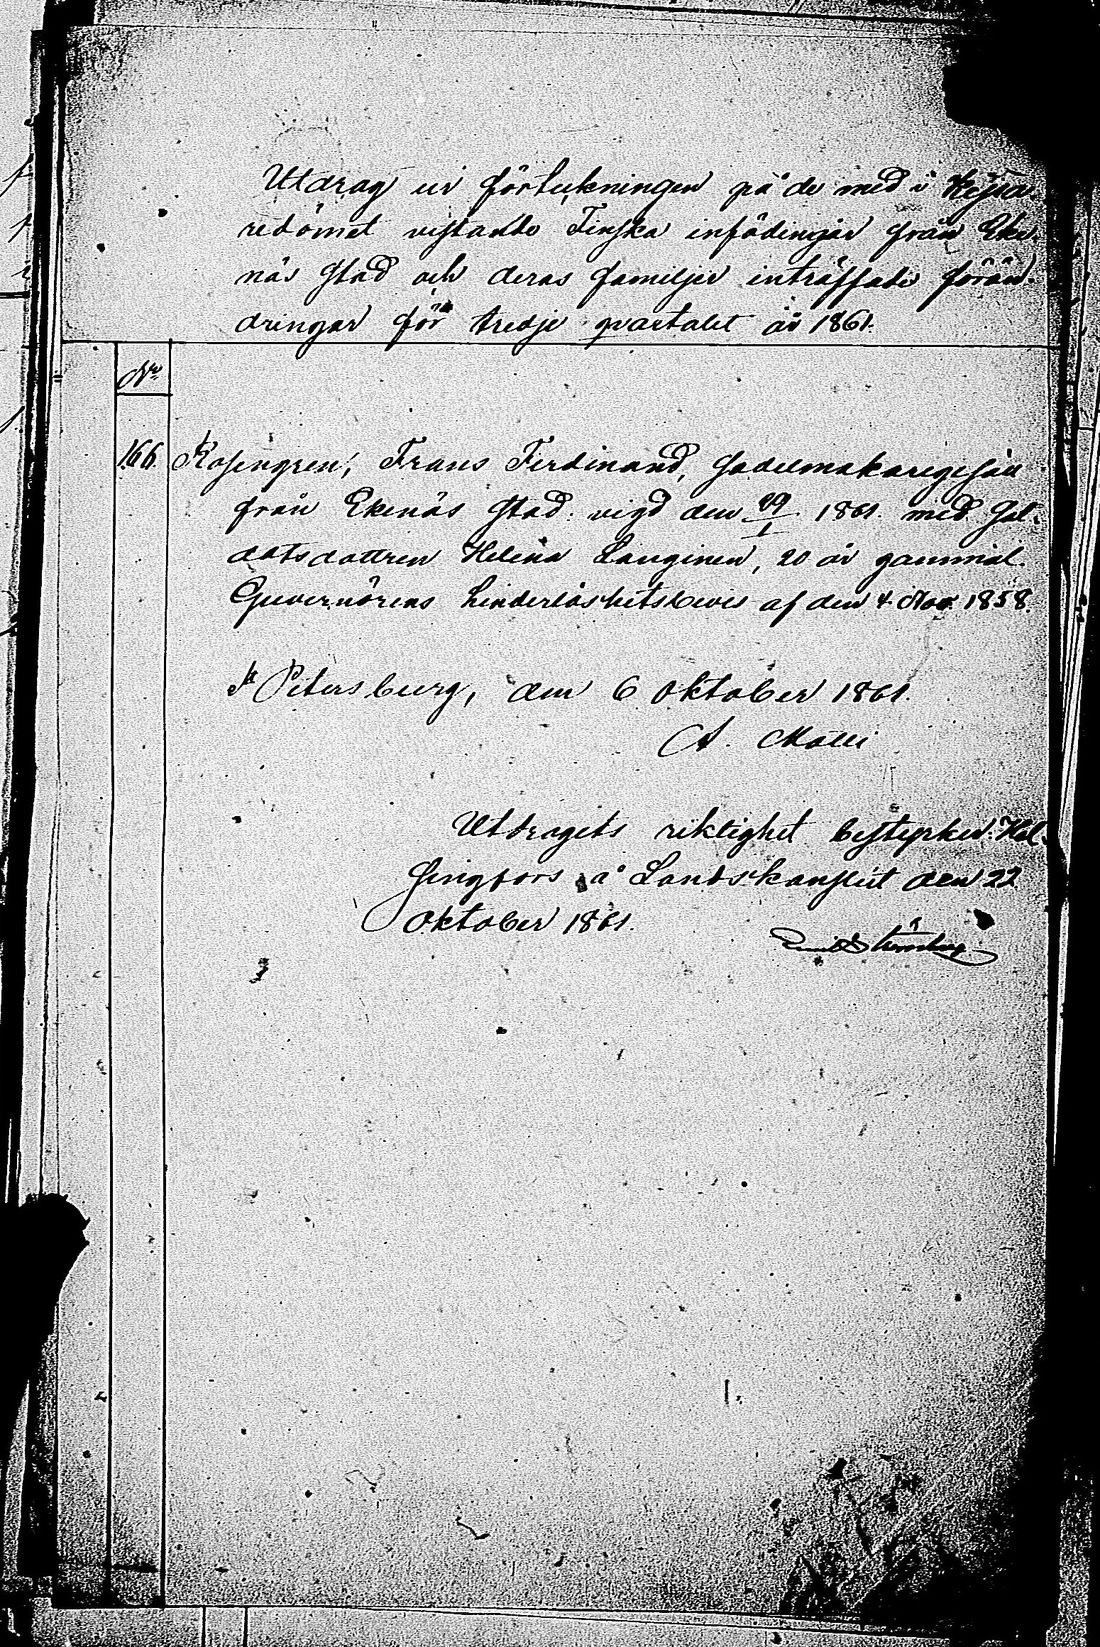 Utdrag ur förteckningen på de med i Kejsa-
redömet vistande Finska infödingar från Eke-
näs stad och deras familjer inträffade förän-
dringar för tredje qvartalet år 1861.
No
166. Rosengren, Frans Ferdinand, sadelmakaregesäll
från Ekenäs stad. vigd den 29/1 1861. med Sol-
datsdottren Helena Langinen, 20 år gammal.
Guvernörens hinderlöshetsbevis af den 4 Nov. 1858.
St Petersburg, den 6 Oktober 1861.
A.
Utdragets riktighet bestyrker. Hel-
singfors å Landskansliet den 22
Oktober 1861.
Emil